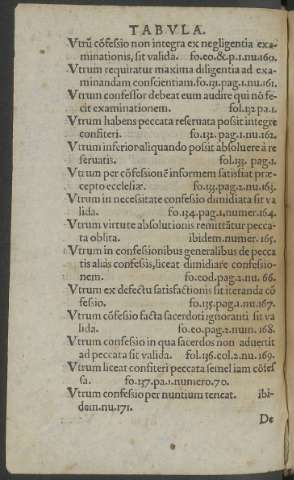 TABVLA.
Vtrũ cõfessio non integra ex negligentia exa-
minationis, sit valida. fo.eo.&.p.1.nu.160.
Vtrum requiratur maxima diligentia ad exa-
minandam conscientiam. fo.131.pag.1.nu.161.
Vtrum confessor debeat eum audire qui nõ fe-
cit examinationem. fol.132.pa.1.
Vtrum habens peccata reseruata possit integre
confiteri. fo.132.pag.1.nu.162.
Vtrum inferior aliquando possit absoluere à re
seruatis. fol.133. pag.1.
Vtrum per cõfessionẽ informem satisfiat præ-
cepto ecclesiæ. fo.133.pag.1.nu.163.
Vtrum in necessitate confessio dimidiata sit va
lida. fo.134.pag.1,numer.164.
Vtrum virtute absolutionis remittãtur pecca-
ta oblita. ibidem.numer.165.
Vtrum in confessionibus generalibus de pecca
tis aliàs confessis, liceat dimidiare confessio-
nem. fo.eod.pag.2.nu.66.
Vtrum ex defectu satisfactionis sit iteranda cõ
fessio. fo.135.pag.1.nu.167.
Vtrum cõfessio facta sacerdoti ignoranti sit va
lida. fo.eo.pag.2.num.168.
Vtrum confessio in qua sacerdos non aduertit
ad peccata sit valida. fol.136.col.2.nu.169.
Vtrum liceat confiteri peccata semel iam cõfes
sa. fo.137.pa.1.numero.70.
Vtrum confessio per nuntium teneat. ibi-
dem.nu.171.
De